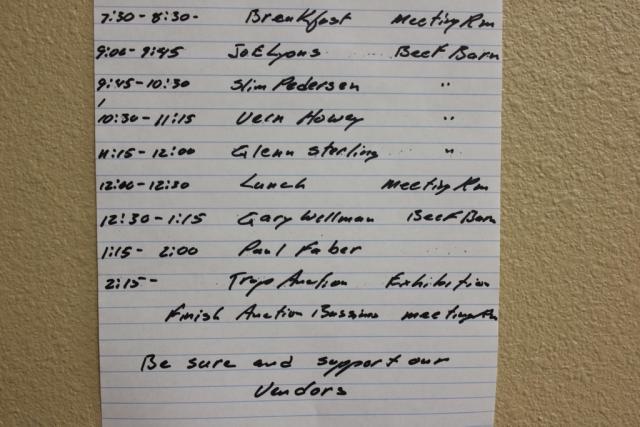 7:30-8:30- Breakfast Meeting Rm
9:00-9:45 Jo E Lyons Beef Barn
9:45-10:30 Slim Pedersen "
10:30-11:15 Vern Howey "
11:15-12:00 Glenn Sterling "
12:00-12:30 Lunch Meeting Rm
12:30-1:15 Gary Wellman Beef Barn
1:15- 2:00 Paul Faber
2:15- Auction Exhibition
Finish Auction meeting Rm
Be sure and support our
Vendors